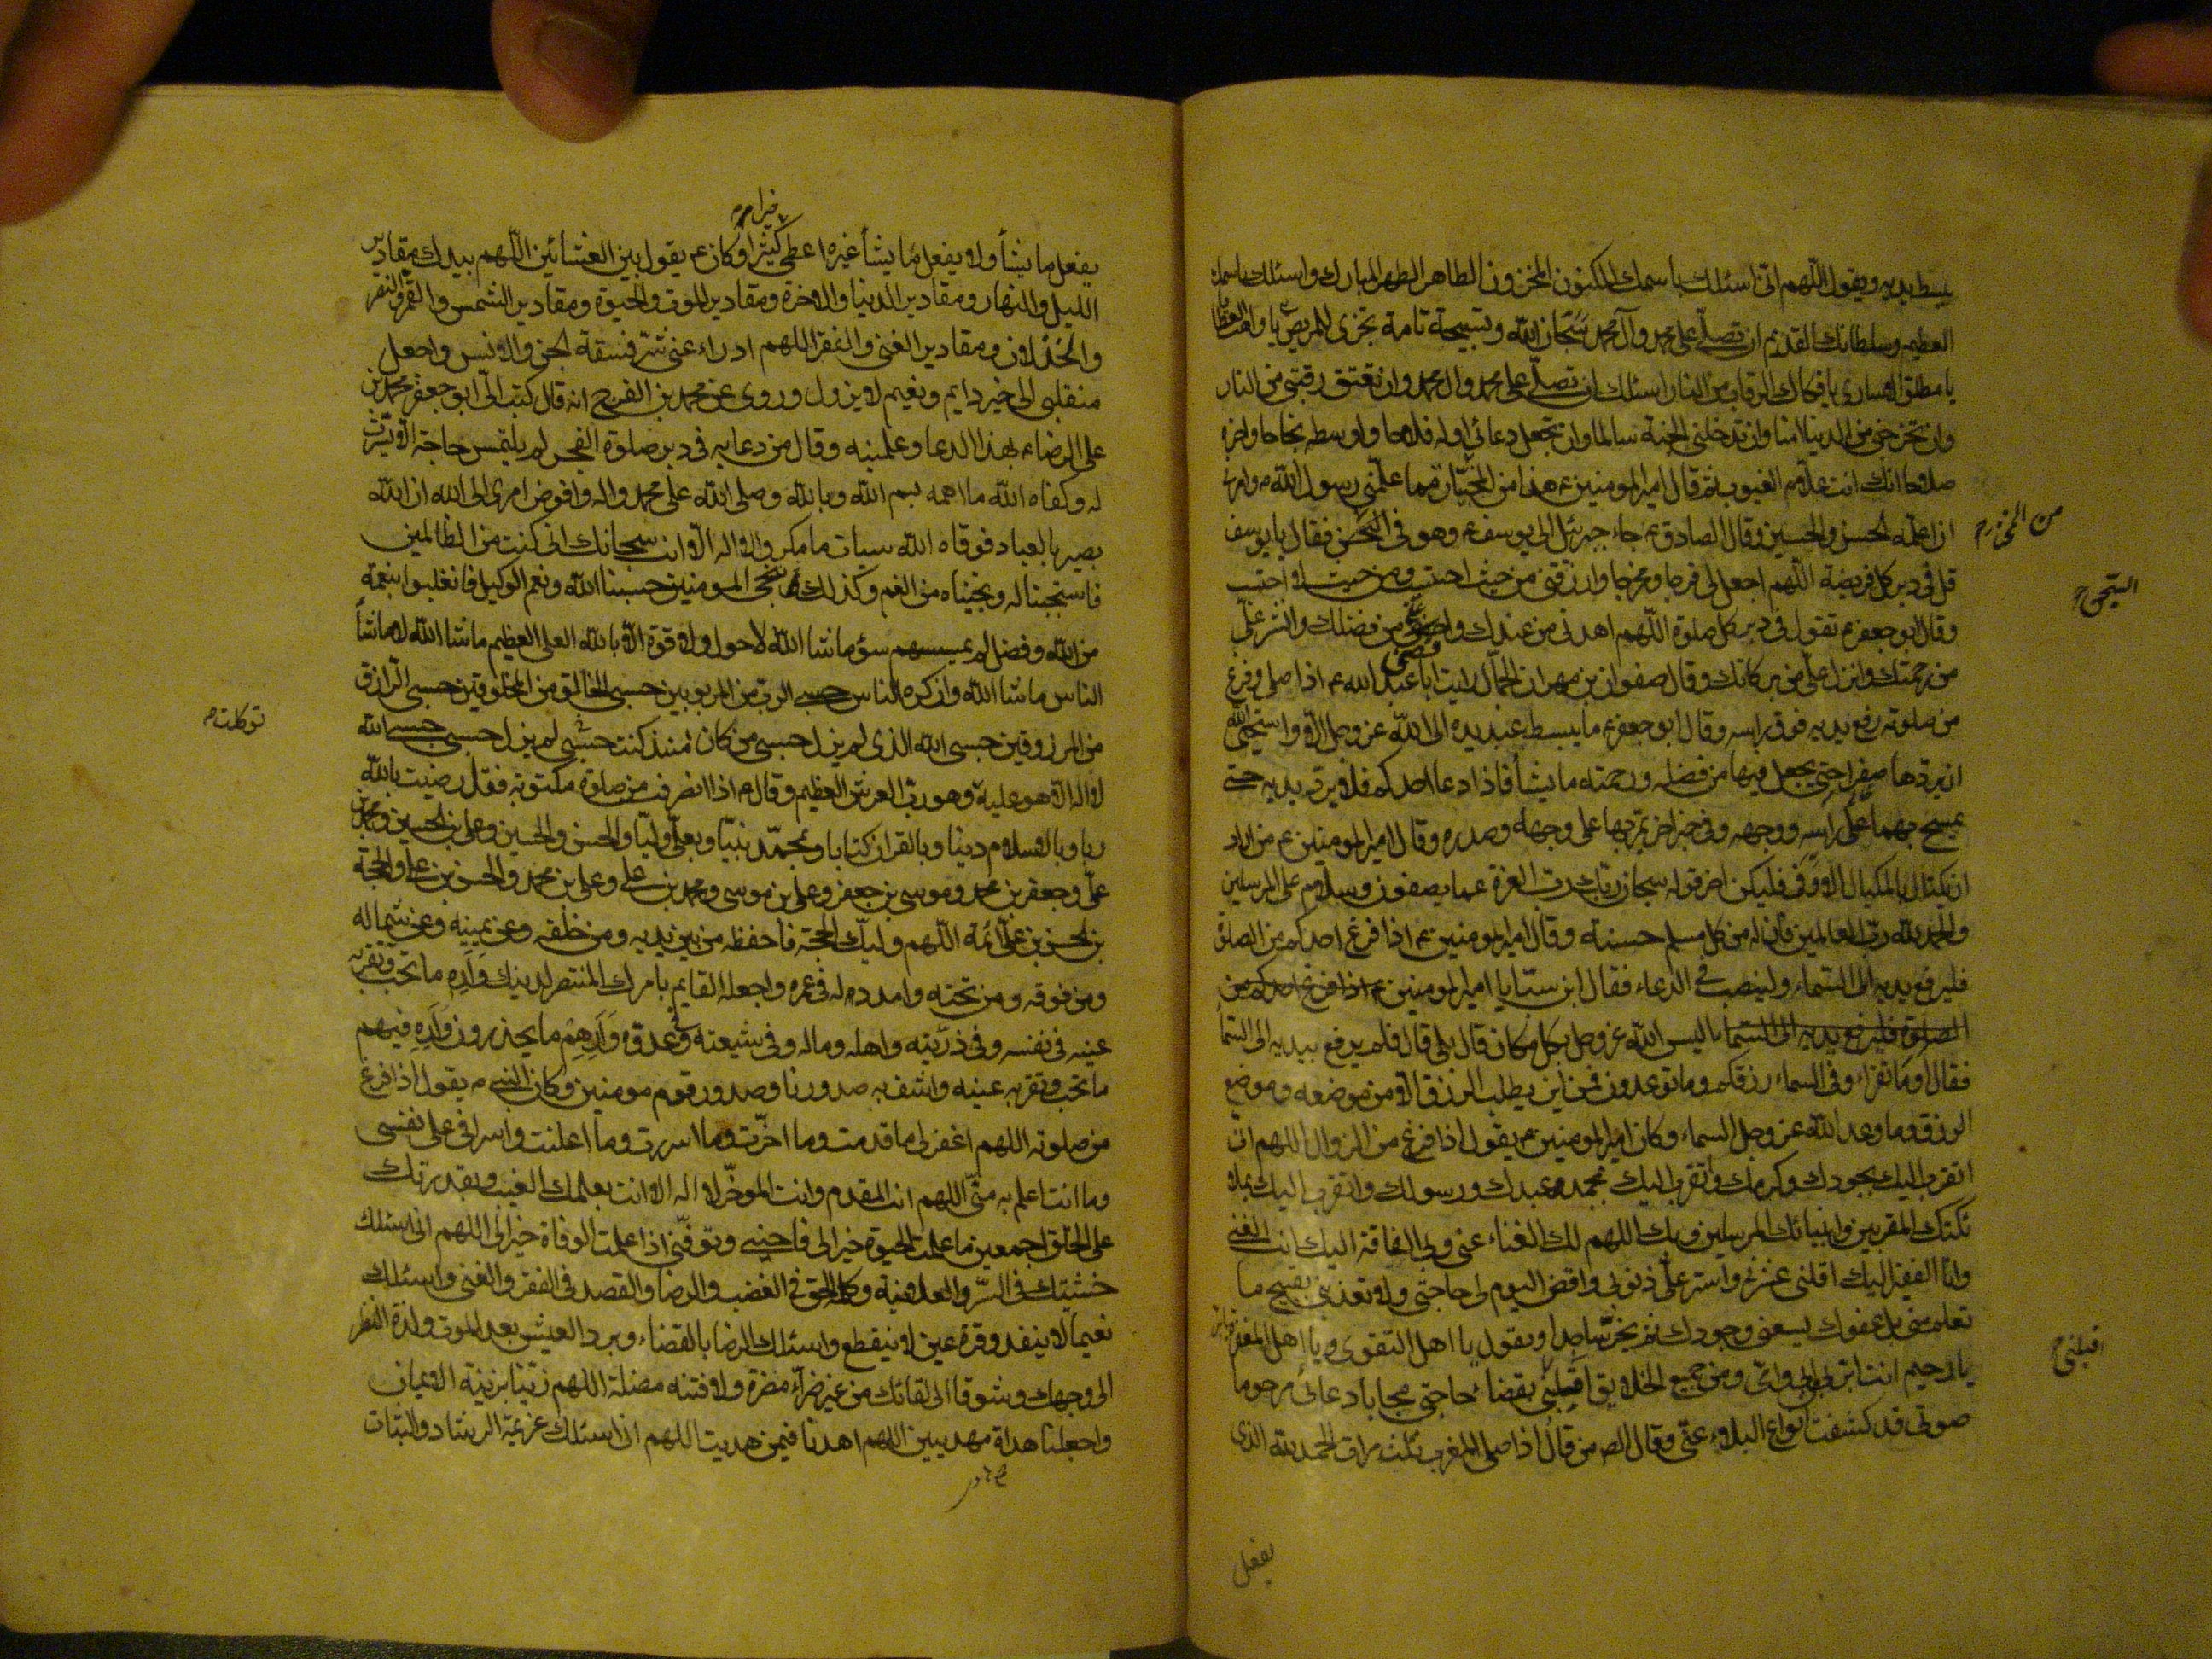 يبسط يديه ويقول اللهم انى اسئلك باسمك المكنون المخزون الطاهر الطهر المبارك واسئلك باسمك
العظيم وسلطانك القديم ان تصلى على محمد وآل محمد سبحان الله وتسبيحة تامة تجزى للمريض يا واهب العطايا
يا مطلق الاسارى يا فكاك الرقاب من النار اسئلك ان تصلى على محمد وال محمد وان تعتق رقبتى من النار
وان تخرجنى من الدنيا امنا وان تدخلنى الجنة سالما وان تجعل دعائى اوله فلاحا واوسطه نجاحا واخره
صلاحا انك انت علام الغيوب ثم قال امير المومنين ع هذا من المخبيات مما علمنى رسول الله ص وامرنى
ان اعلمه الحسن والحسين وقال الصادق ع جاء جبرئيل الى يوسف ع وهو فى السجن فقال يا يوسف
قل فى دبر كل فريضة اللهم اجعل لى فرجا ومخرجا وارزقنى من حيث احتسب ومن حيث لا احتسب
وقال ابو جعفر ع تقول فى دبر كل صلوة اللهم اهدنى من عندك وافض على من فضلك وانشر على
من رحمتك وانزل على من بركاتك وقال صفوان بن مهران الجمال رايت ابا عبد الله ع اذا صلى وفرغ
من صلوته رفع يديه فوق راسه وقال ابو جعفر ع ما يبسط عبد يده الى الله عز وجل الا واستحيى الله
ان يردها صفرا حتى يجعل فيها من فضله ورحمته ما يشأ فاذا دعا احدكم فلا يرد يديه حتى
يمسح بهما على راسه ووجهه وفى خبر اخر على وجهه وصدره وقال امير المومنين ع من اراد
ان يكتال بالمكيال الاوفى فليكن اخر قوله سبحان ربك رب العزة عما يصفون وسلام على المرسلين
والحمد لله رب العالمين فان له من كل مسلم حسنة وقال امير المومنين ع اذا فرغ احدكم من الصلوة
فليرفع يديه الى السماء ولينصب فى الدعاء فقال ابن سبا يا امير المومنين ع اذا فرغ احدكم من
الصلوة فليرفع يديه الى السماء اليس الله عز وجل بكل مكان قال بلى قال فلم يرفع يديه الى السمأ
فقال او ما تقراء وفى السماء رزقكم وما توعدون فمن اين يطلب الرزق الا من موضعه وموضع
الرزق وما وعد الله عز وجل السماء وكان امير المومنين ع يقول اذا فرغ من الزوال اللهم انى
اتقرب اليك بجودك وكرمك واتقرب اليك بمحمد عبدك ورسولك واتقرب اليك بملا
ئكتك المقربين وانبيائك المرسلين وبك اللهم لك الغناء عنى وبى الفاقة اليك انت الغنى
وانا الفقير اليك اقلنى عثرتى واستر على ذنوبى واقض اليوم لى حاجتى ولا تعذبنى بقبيح ما
تعلم منى بل عفوك يسعنى وجودك ثم يخر ساجدا ويقول يا اهل التقوى ويا اهل المغفرة
يا رحيم انت ابر بى من ابى وامى ومن جميع الخلايق اقلبنى بقضاء حاجتى مجابا دعائى مرحوما
صوتى قد كشفت انواع البلاء عنى وقال الص من قال اذا صلى المغرب ثلث مرات الحمد لله الذى
من المخزو
السجن
اقبلنى
يفعل
خيرا
يفعل ما يشأ ولا يفعل ما يشأ غيره اعطى كثيرا وكان ع يقول بين العشائين اللهم بيدك مقادير
الليل والنهار ومقادير الدنيا والاخرة ومقادير الموت والحيوة ومقادير الشمس والقمر والنصر
والخذلان ومقادير الغنى والفقر اللهم ادراء عنى شر فسقة الجن والانس واجعل
منقلبى الى خير دايم ونعيم لا يزول وروى عن محمد بن الفرج انه قال كتب الى ابو جعفر محمد بن
على الرضا ع بهذا الدعا وعلمنيه وقال من دعا به فى دبر صلوة الفجر لم يلتمس حاجة الا يسرت
له وكفاه الله ما اهمه بسم الله وبالله وصلى الله على محمد واله وافوض امرى الى الله ان الله
بصير بالعباد فوقاه الله سيات ما مكروا لا اله الا انت سبحانك انى كنت من الظالمين
فاستجبنا له ونجيناه من الغم وكذلك ننجى المومنين حسبنا الله ونعم الوكيل فانقلبوا بنعمة
من الله وفضل لم يمسسهم سؤ ما شا الله لا حول ولا قوة الا بالله العلى العظيم ما شا الله لا ما شأ
الناس ما شا الله وان كره الناس حسبى الرب من المربوبين حسبى الخالق من المخلوقين حسبى الرازق
من المرزوقين حسبى الله الذى لم يزل حسبى من كان منذ كنت حسبى لم يزل حسبى حسبى الله
لا اله الا هو عليه وهو رب العرش العظيم وقال ع اذا انصرف من صلوة مكتوبة فقل رضيت بالله
ربا وبالاسلام دينا وبالقران كتابا وبمحمد نبيا وبعلى وليا والحسن والحسين وعلى بن الحسين ومحمد بن
على وجعفر بن محمد وموسى بن جعفر وعلى بن موسى ومحمد بن على وعلى بن محمد والحسن بن على والحجة
بن الحسن بن على ائمة اللهم وليك الحجة فاحفظه من بين يديه ومن خلفه وعن يمينه وعن شماله
ومن فوقه ومن تحته وامدد له فى عمره واجعله القايم بامرك المنتصر لدينك وَاَرِهِ ما تحب وتقر به
عينه فى نفسه وفى ذريته واهله وماله وفى شيعته وفى عدوه وَاَرِهِمْ ما يحذرون وَاَرِهِ فيهم
ما تحب وتقر به عينه واشف به صدورنا وصدور قوم مومنين وكان النبى ص يقول اذا فرغ
من صلوته اللهم اغفر لى ما قدمت وما اخرت وما اسررت وما اعلنت واسرافى على نفسى
وما انت اعلم به منى اللهم انت المقدم وانت الموخر لا اله الا انت بعلمك الغيب وبقدرتك
على الخلق اجمعين ما علمت الحيوة خيرا لى فاحينى وتوفنى اذا علمت الوفاة خيرا لى اللهم انى اسئلك
خشيتك فى السر والعلانية وكلمة الحق فى الغضب والرضا والقصد فى الفقر والغنى واسئلك
نعيما لا ينفد وقرة عين لا ينقطع واسئلك الرضا بالقضاء وبرد العيش بعد الموت ولذة النظر
الى وجهك وشوقا الى لقائك من غير ضراء مضرة ولا فتنه مضلة اللهم زينا بزينة الايمان
واجعلنا هداة مهديين اللهم اهدنا فيمن هديت اللهم انى اسئلك عزيمة الرشاد والثبات
توكلت